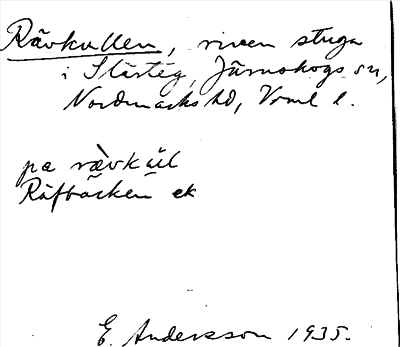 Rävkullen, riven stuga
i Stärteg, Järnskogs sn,
Nordmarks hd, Vrml l.
pa rævkül
Räfbacken ek
E. Andersson 1935.